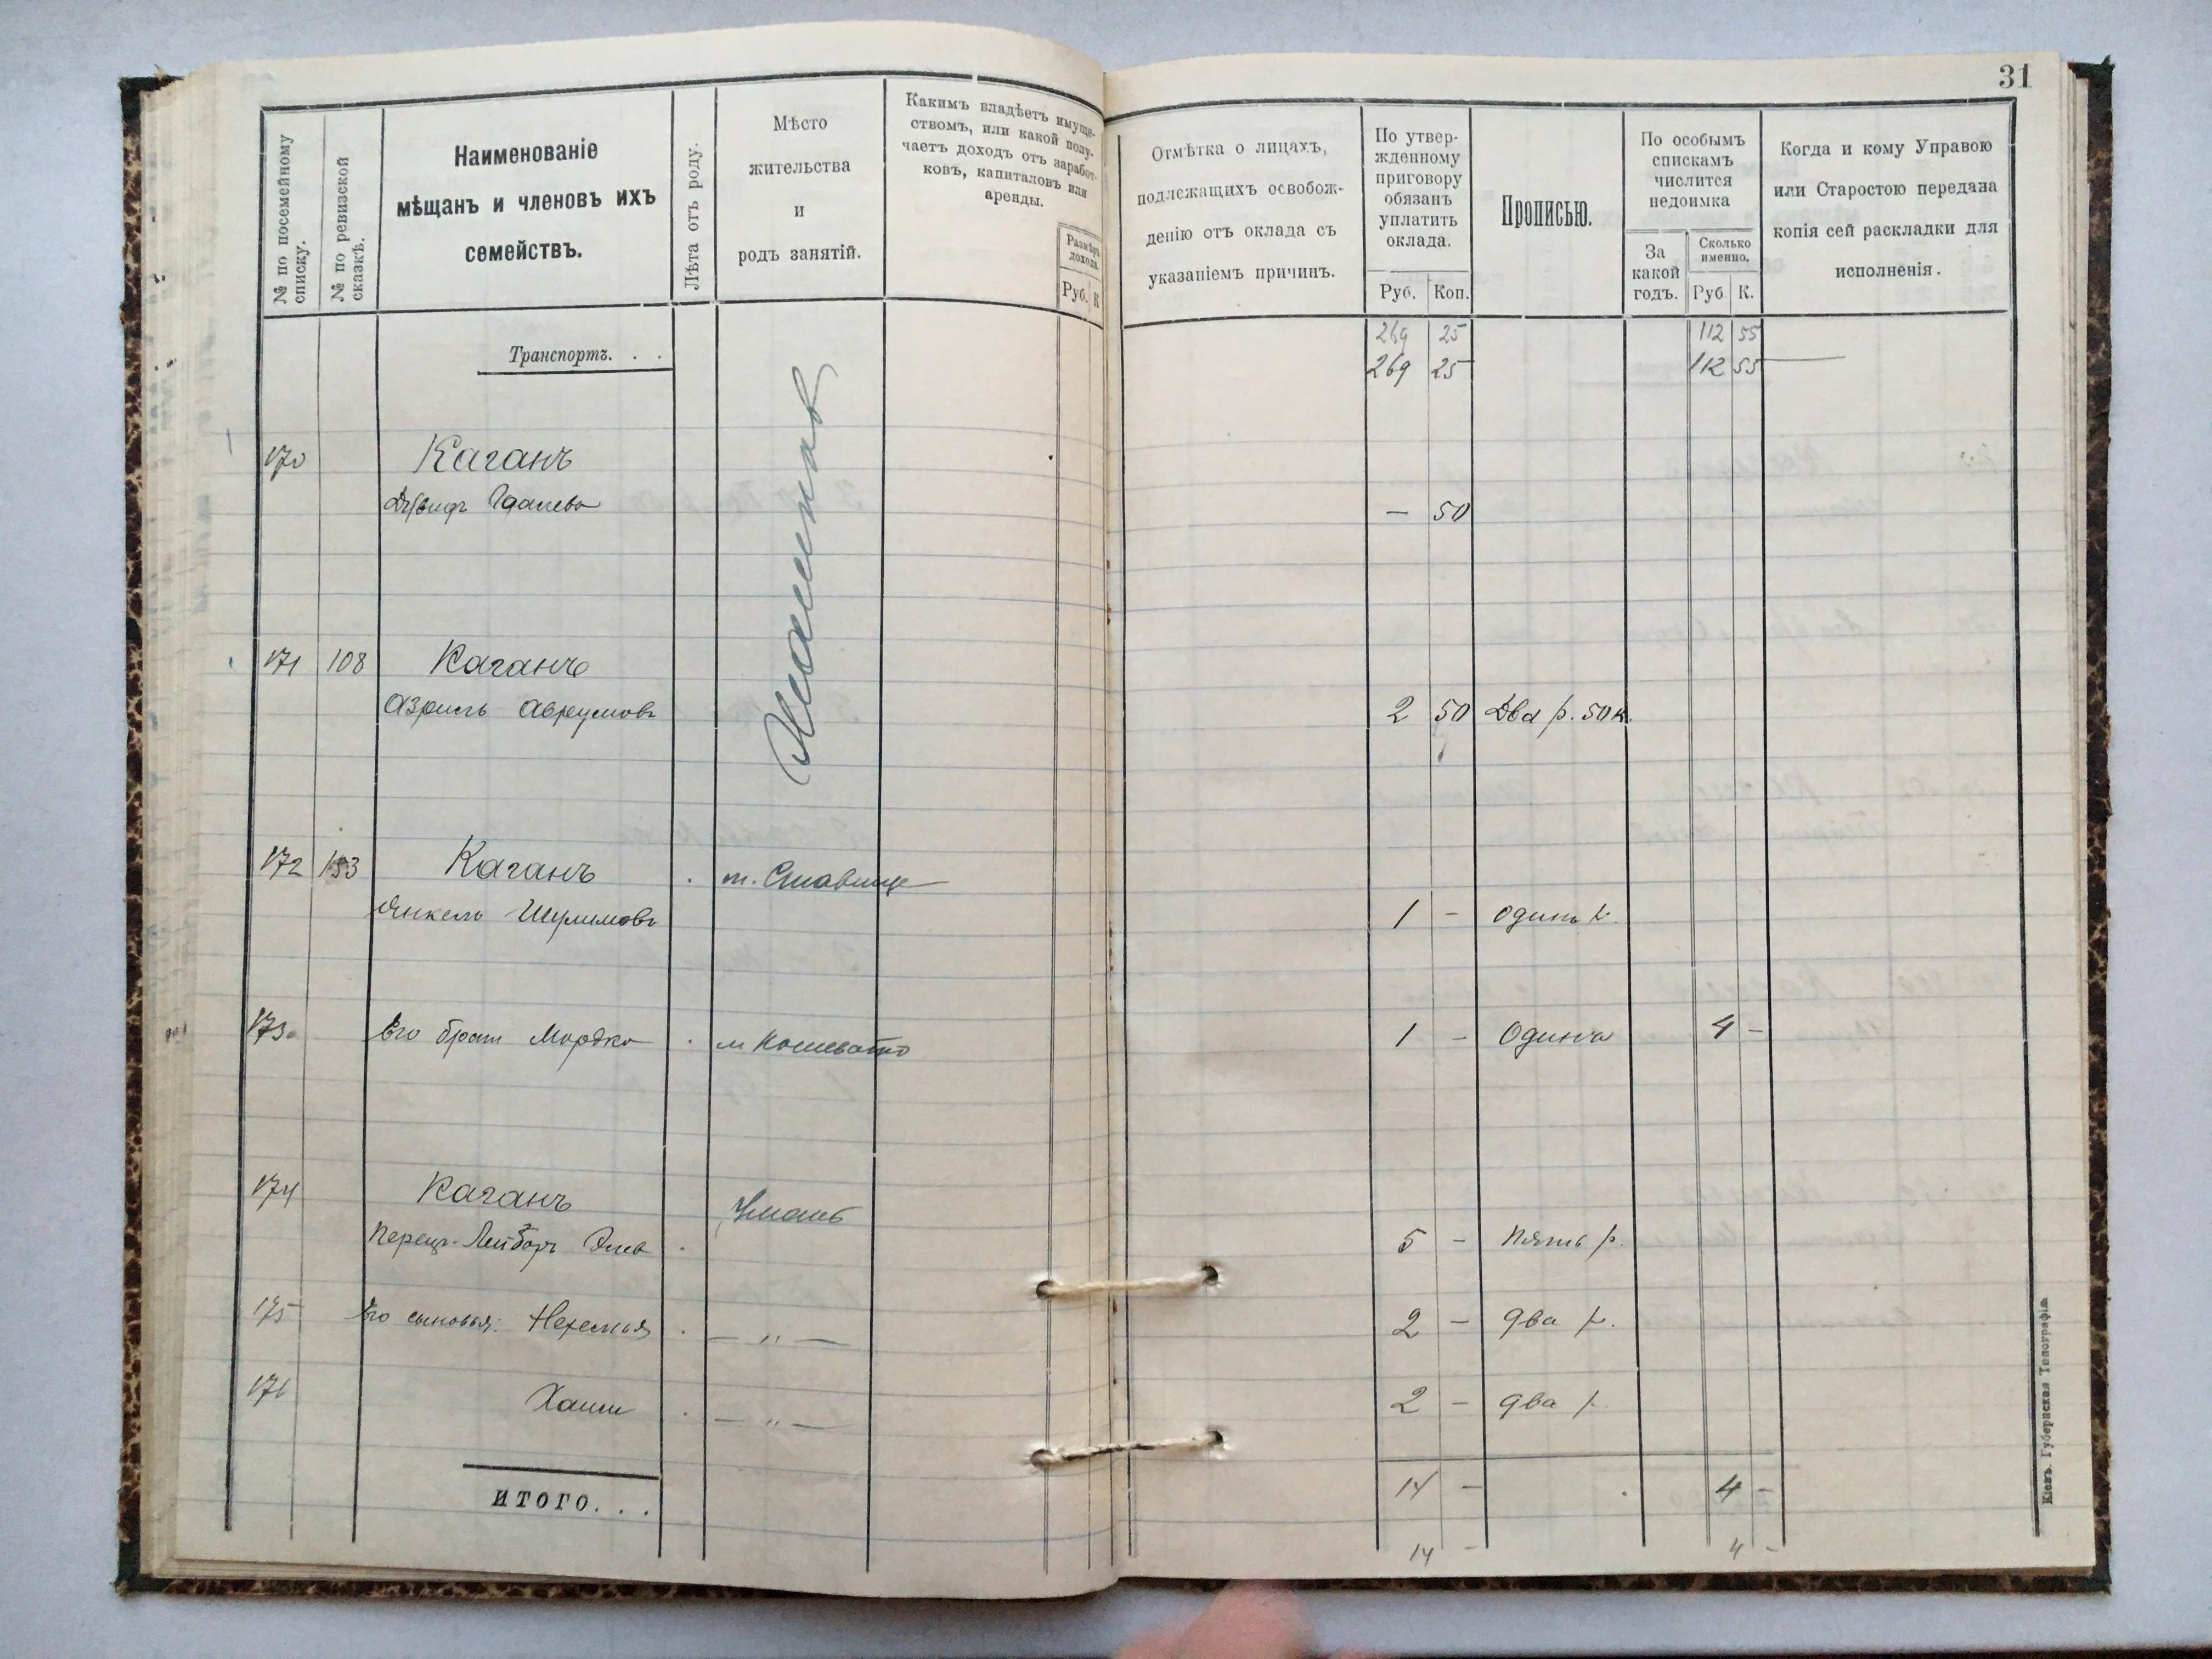 31
№ по посемейному
списку.
№ по ревизской
сказкѣ.
Наименованіе
мѣщанъ и членовъ ихъ
семействъ.
Лѣта отъ роду.
Мѣсто
жительства
и
родъ занятій.
Какимъ владѣетъ имуще-
ствомъ, или какой полу-
чаетъ доходъ отъ заработ-
ковъ, капиталовъ или
аренды.
Размѣръ
дохода.
Руб. К
Отмѣтка о лицахъ,
подлежащихъ освобож-
денію отъ оклада съ
указаніемъ причинъ.
По утвер-
жденному
приговору
обязанъ
уплатить
оклада.
Руб. Коп.
Прописью.
По особымъ
спискамъ
числится
недоимка
За
какой
годъ.
Сколько
именно.
Руб К.
Когда и кому Управою
или Старостою передана
копія сей раскладки для
исполненія.
269 25 112 55
Транспортъ. . .
269 25 112 55
170 Каганъ
— 50
171 108 Каганъ
Азриль Авrумовъ 2 50 Два р. 50 к.
172 153 Каганъ м. Ставище
Янкель Шулимовъ 1 - одинъ р.
173 Его братъ Мордко 1 - Одинъ 4 -
174 Каганъ Умань
Перецъ-Лейборъ 5 - пять р.
175 Его сыновья: Нехемья — „ — 2 - два р.
176 Хаим — „ — 2 - два р.
ИТОГО. . .
14 - 4 -
14 - 4 -
Кіевъ. Губернская Типографія.